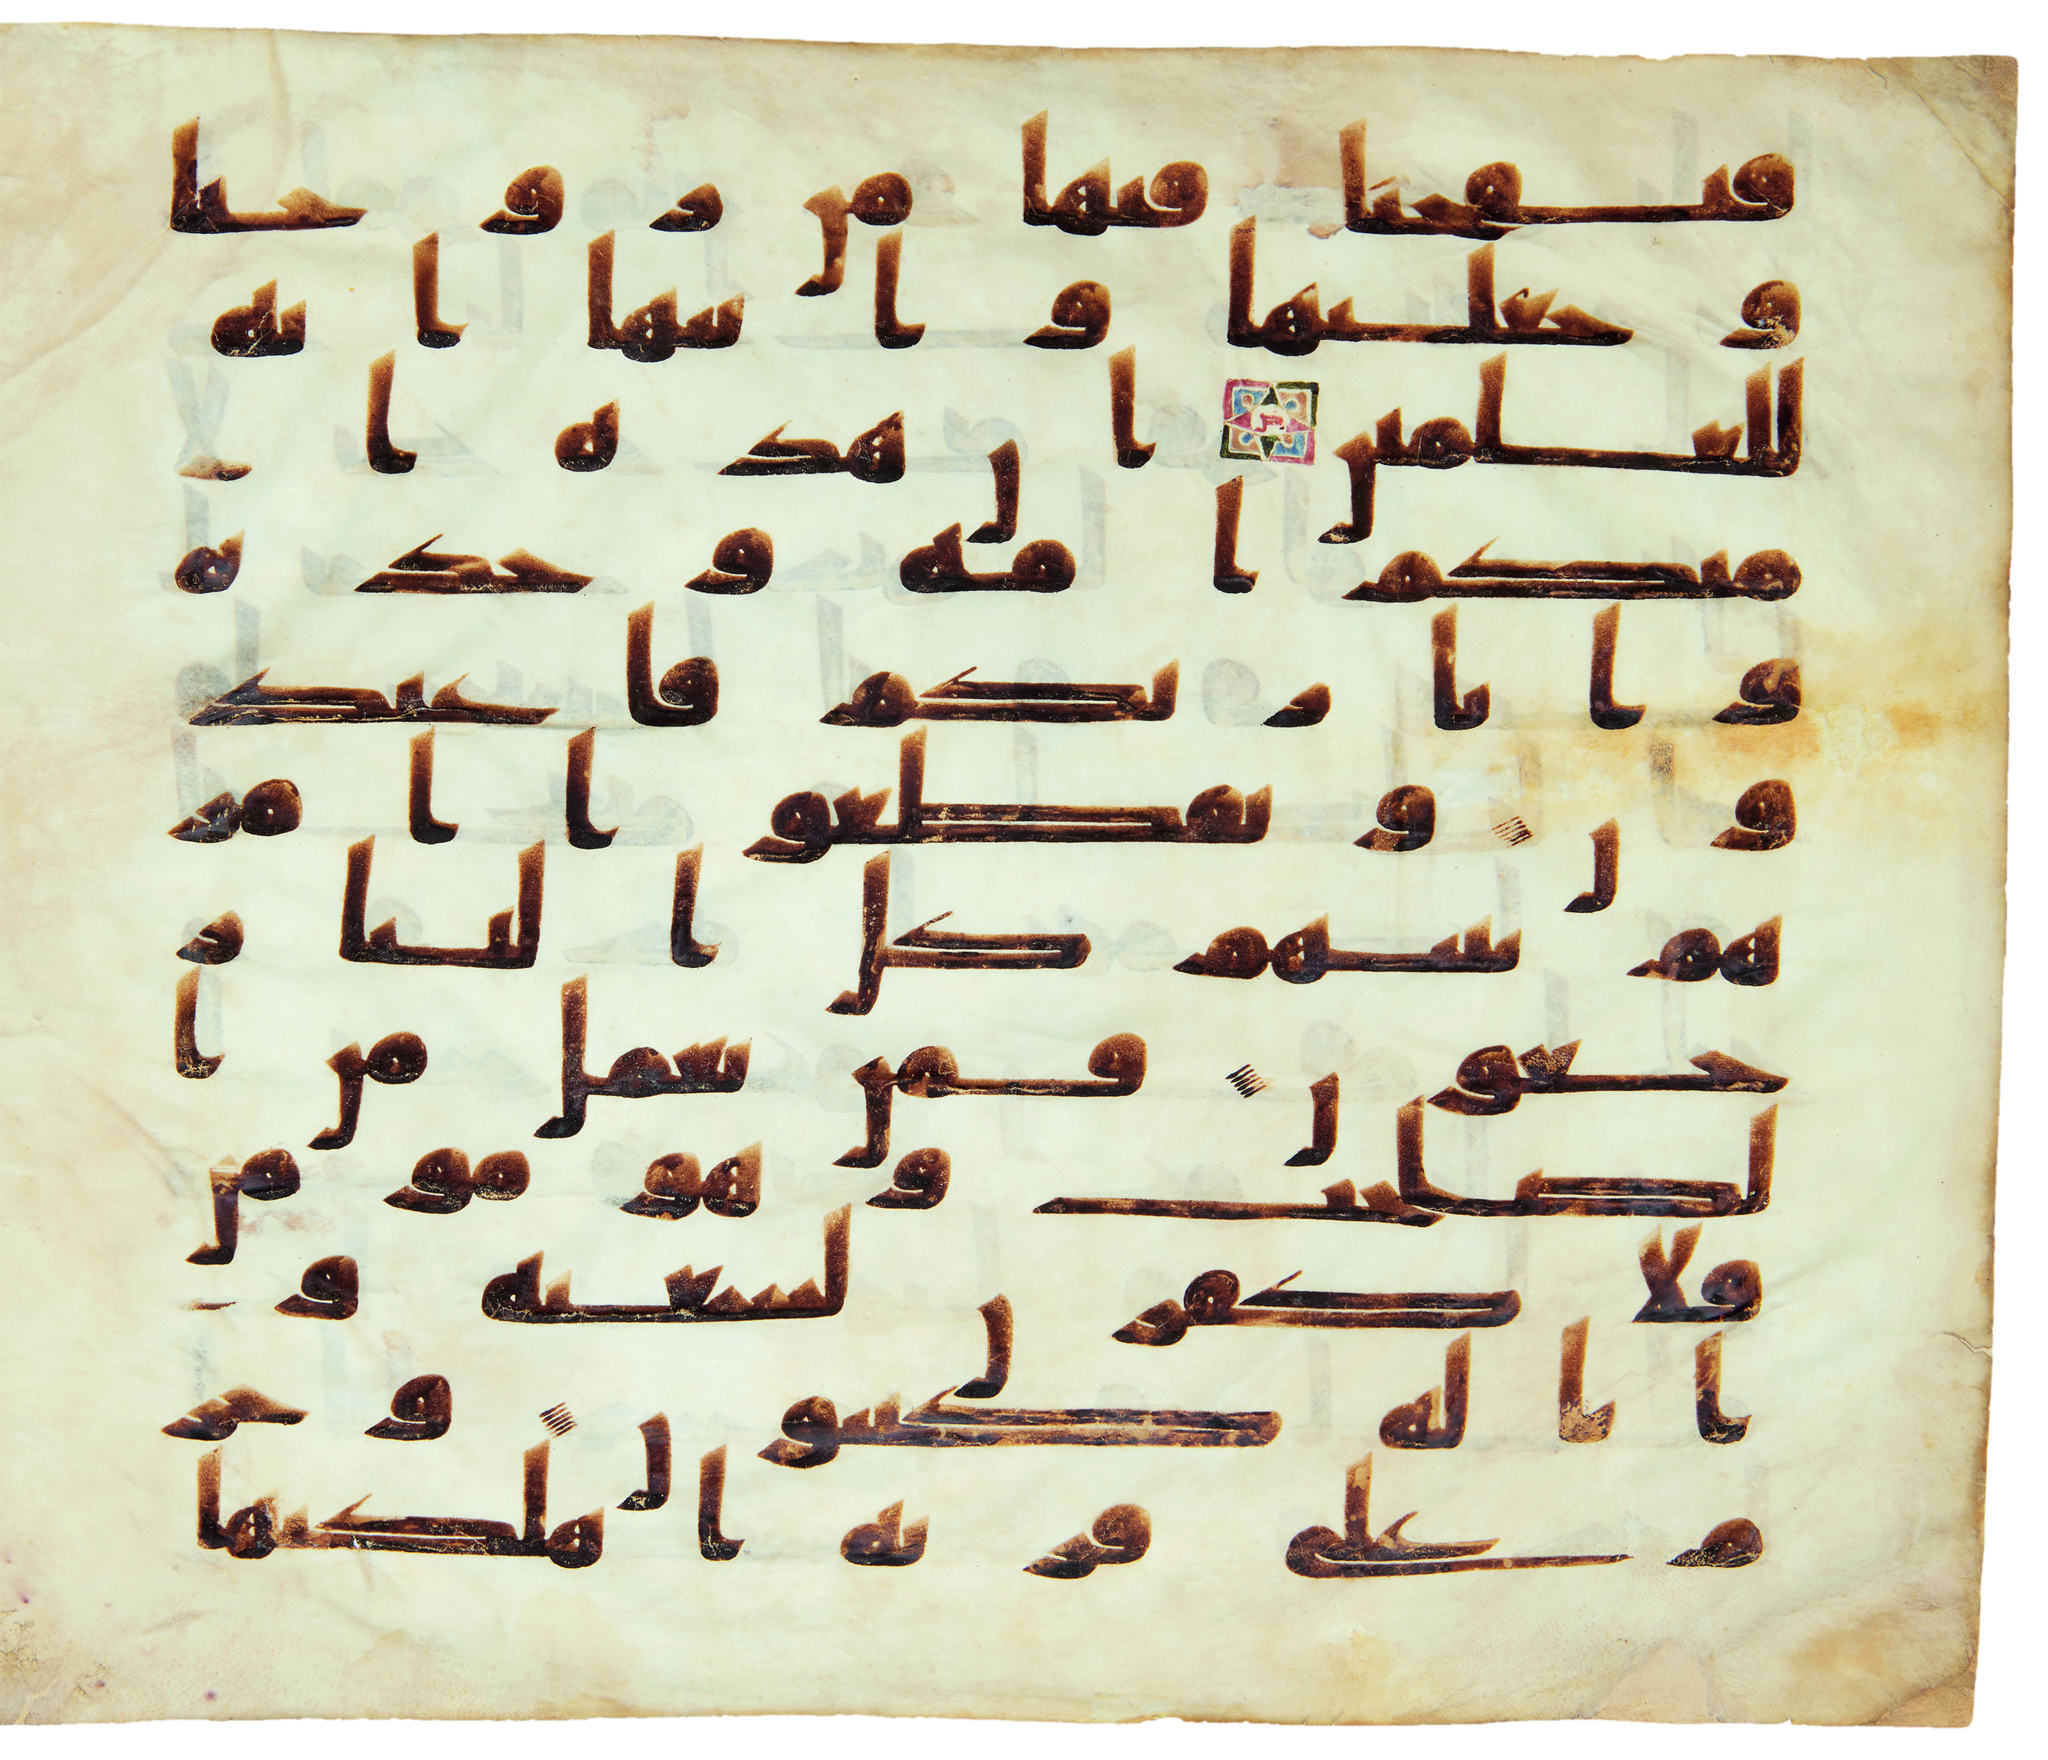 فنفخنا فيها من روحنا
وجعلنها وابنها اية
للعلمين ان هذه ا
متكم امة وحدة
وانا ربكم فاعبد
ون وتقطعوا امر
هم بينهم كل الينا ر
جعون فمن يعمل من ا
لصلحت وهو مومن
فلا كفرن لسعيه و
انا له كتبون وحر
م على قرية اهلكنها